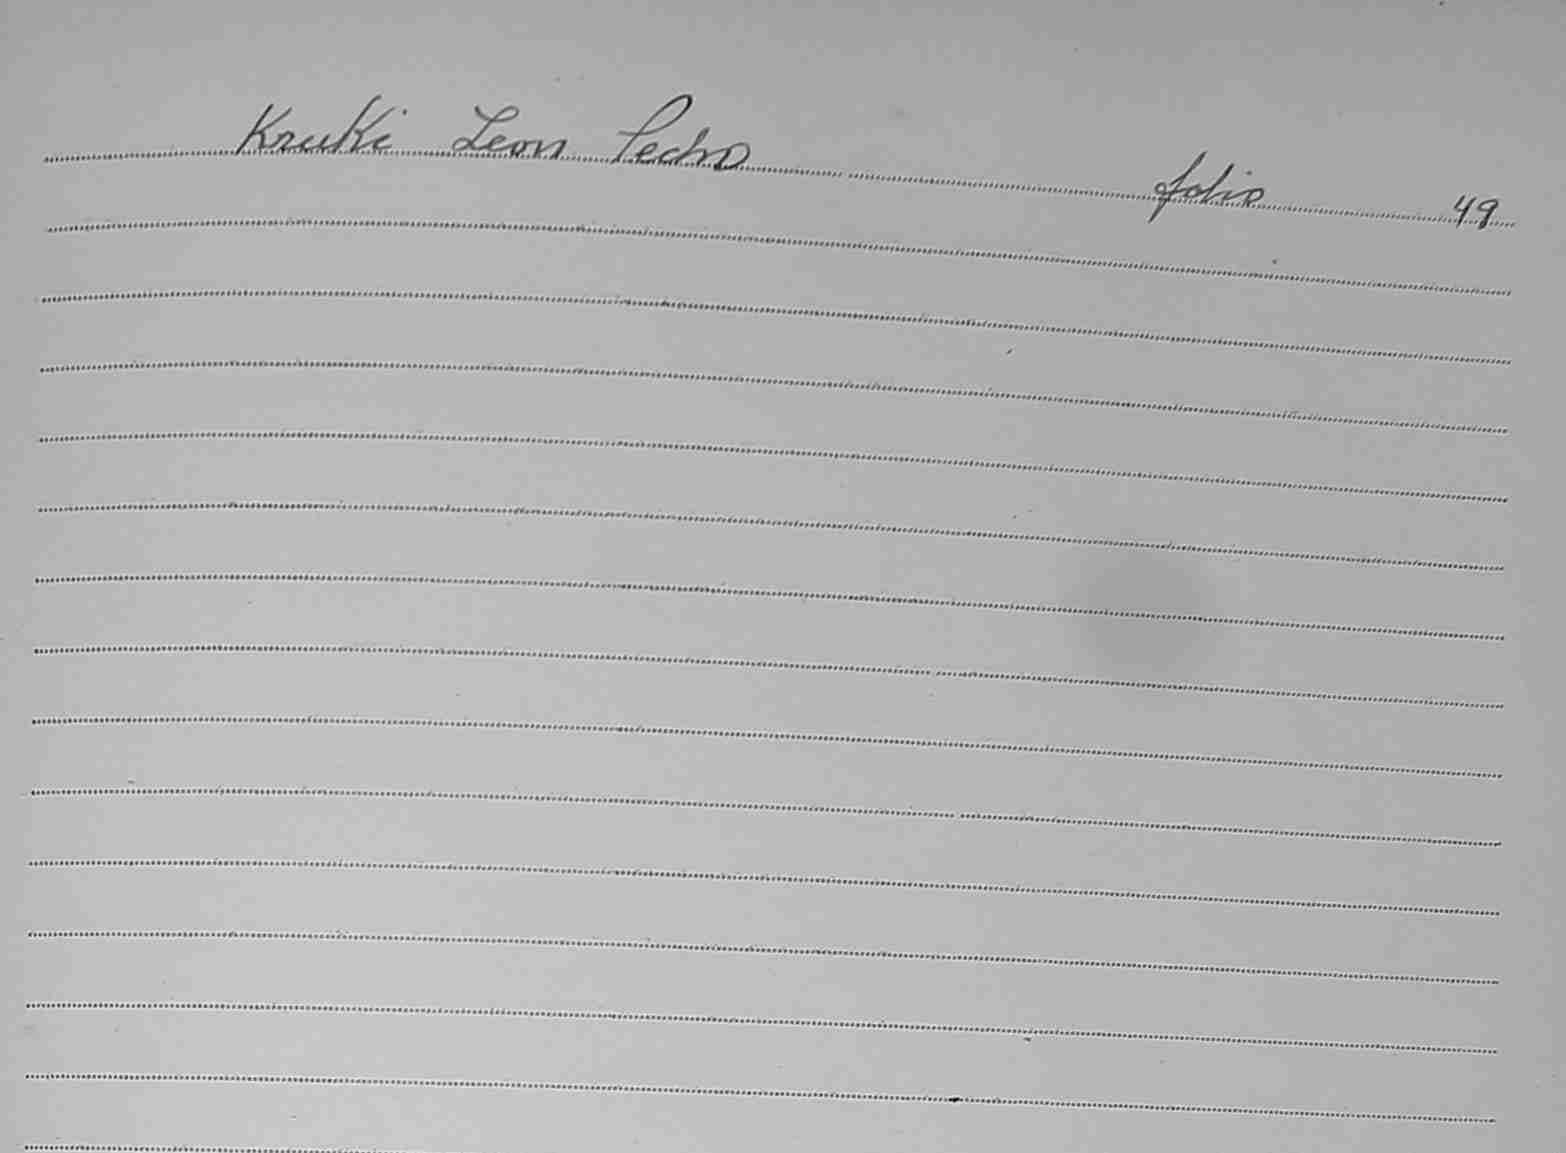 Kruki Leon Pedro folio 49